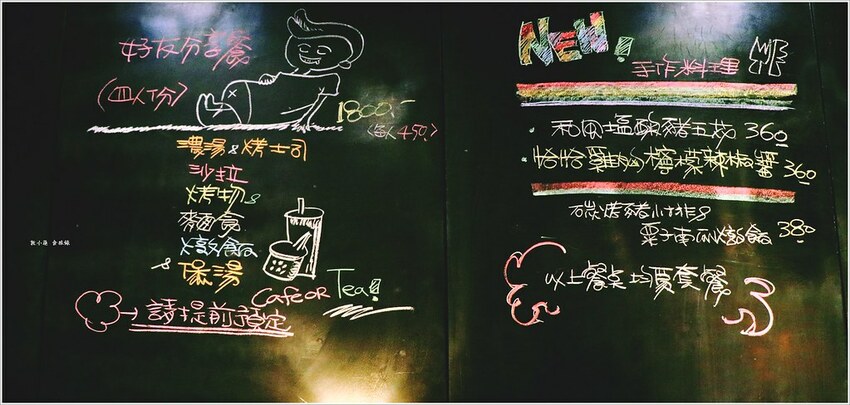 好友分享餐
(四人份)
1800.-
(每人450.)
濃湯&烤士司
沙拉
烤物&
麵食
燉飯
&煲湯
Cafe OR Tea!
請提前預定
NEW!
手作料理
和風塩酸豬五花 360
恰恰雞胸檸檬辣椒醬 360
碳烤豬小排&
栗子南瓜燉飯 380
以上餐点均為套餐